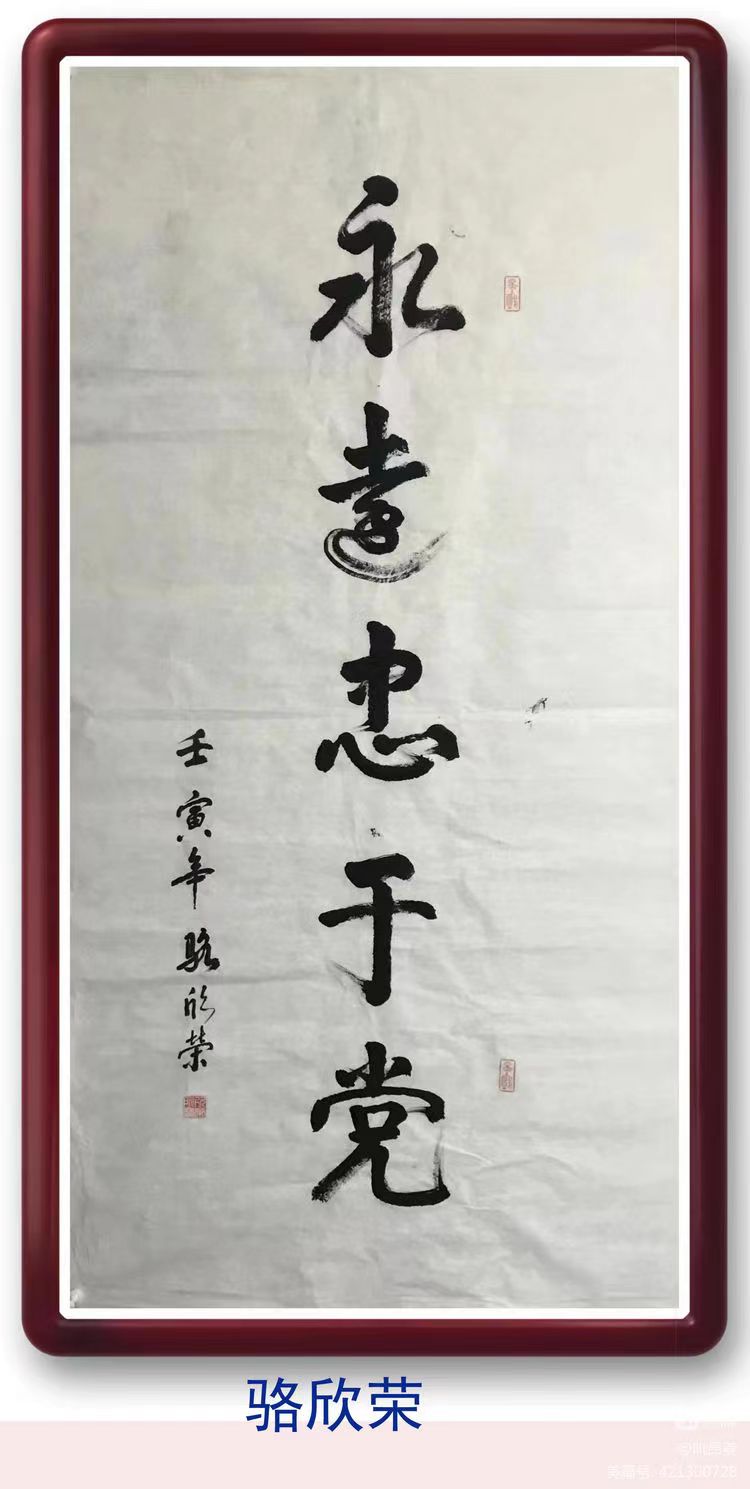 永遠忠于党
壬寅年 駱欣荣
骆欣荣
美篇号: 421300728